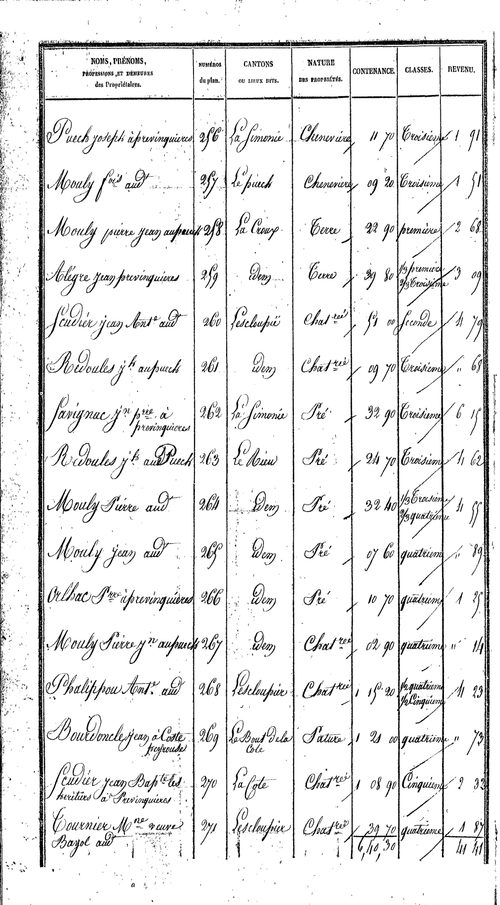 NOMS, PRÉNOMS, PROFESSIONS, ET DEMEURES des Propriétaires. NUMÉROS du plan. CANTONS OU LIEUX DITS. NATURE DES PROPRIÉTÉS. CONTENANCE. CLASSES. REVENU.
Puech joseph à previnquieres 256 La Simonie Cheneviere 11 70 Troisieme 1 91
Mouly fois aud 257 Le puech Cheneviere 09 20 Troisieme 1 51
Mouly pierre jean au puech 258 La Croux Terre 22 90 première 2 68
Alégre jean previnquieres 259 idem Terre 39 80 1/3 premiere 2/3 Troisieme 3 09
Scudier jean Ante aud 260 Lescloupié Chatreé 51 00 Seconde 4 79
Redoules jh au puech 261 idem Chatreé 09 70 Troisieme " 68
Savignac jn pre à previnquieres 262 La Simonie Pré 32 90 Troisieme 6 15
Redoules jh au Puech 263 Le Rieu Pré 24 70 Troisieme 4 62
Mouly Pierre aud 264 idem Pré 32 40 1/3 Troisieme 2/3 quatrieme 4 55
Mouly jean aud 265 idem Pré 07 60 quatrieme " 89
Orlhac Pre à previnquieres 266 idem Pré 10 70 quatrieme 1 25
Mouly Pierre jn au puech 267 idem Chatreé 02 90 quatrieme " 14
Phalippou Ante aud 268 Lescloupier Chatreé 1 15 20 1/2 quatrieme 1/2 Cinquieme 4 23
Bourdoncle jean à Coste peyrouse 269 Le Bout de la Cote Pature 1 21 00 quatrieme " 73
Scudier jean Bapte les heritiers à Previnquieres 270 La Cote Chatreé 1 08 90 Cinquieme 2 32
Tournier Mne veuve Bazol aud 271 Lescloupier Chatreé 39 70 quatrieme 1 87
6,40,30 41 41